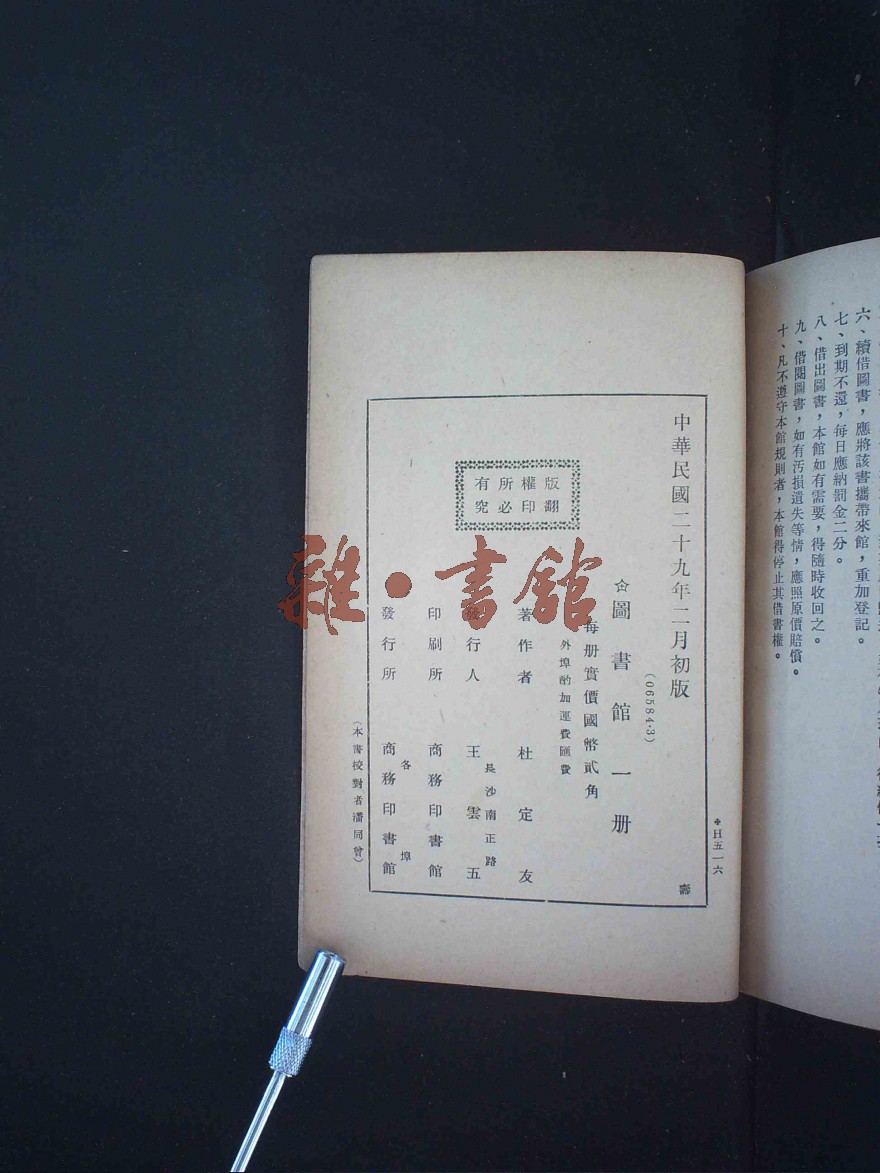 六、續借圖書，應將該書攜帶來館，重加登記。
七、到期不還，每日應納罰金二分。
八、借出圖書，本館如有需要，得隨時收回之。
九、借閱圖書，如有汚損遺失等情，應照原價賠償。
十、凡不遵守本館規則者，本館得停止其借書權。
＊H五一六
中華民國二十九年二月初版
壽
(06584·3)
☆圖書館一册
每册實價國幣貳角
外埠酌加運費匯費
版權所有
翻印必究
著作者 杜定友
長沙南正路
發行人 王雲五
印刷所 商務印書館
各埠
發行所 商務印書館
(本書校對者潘同曾)
雜·書館